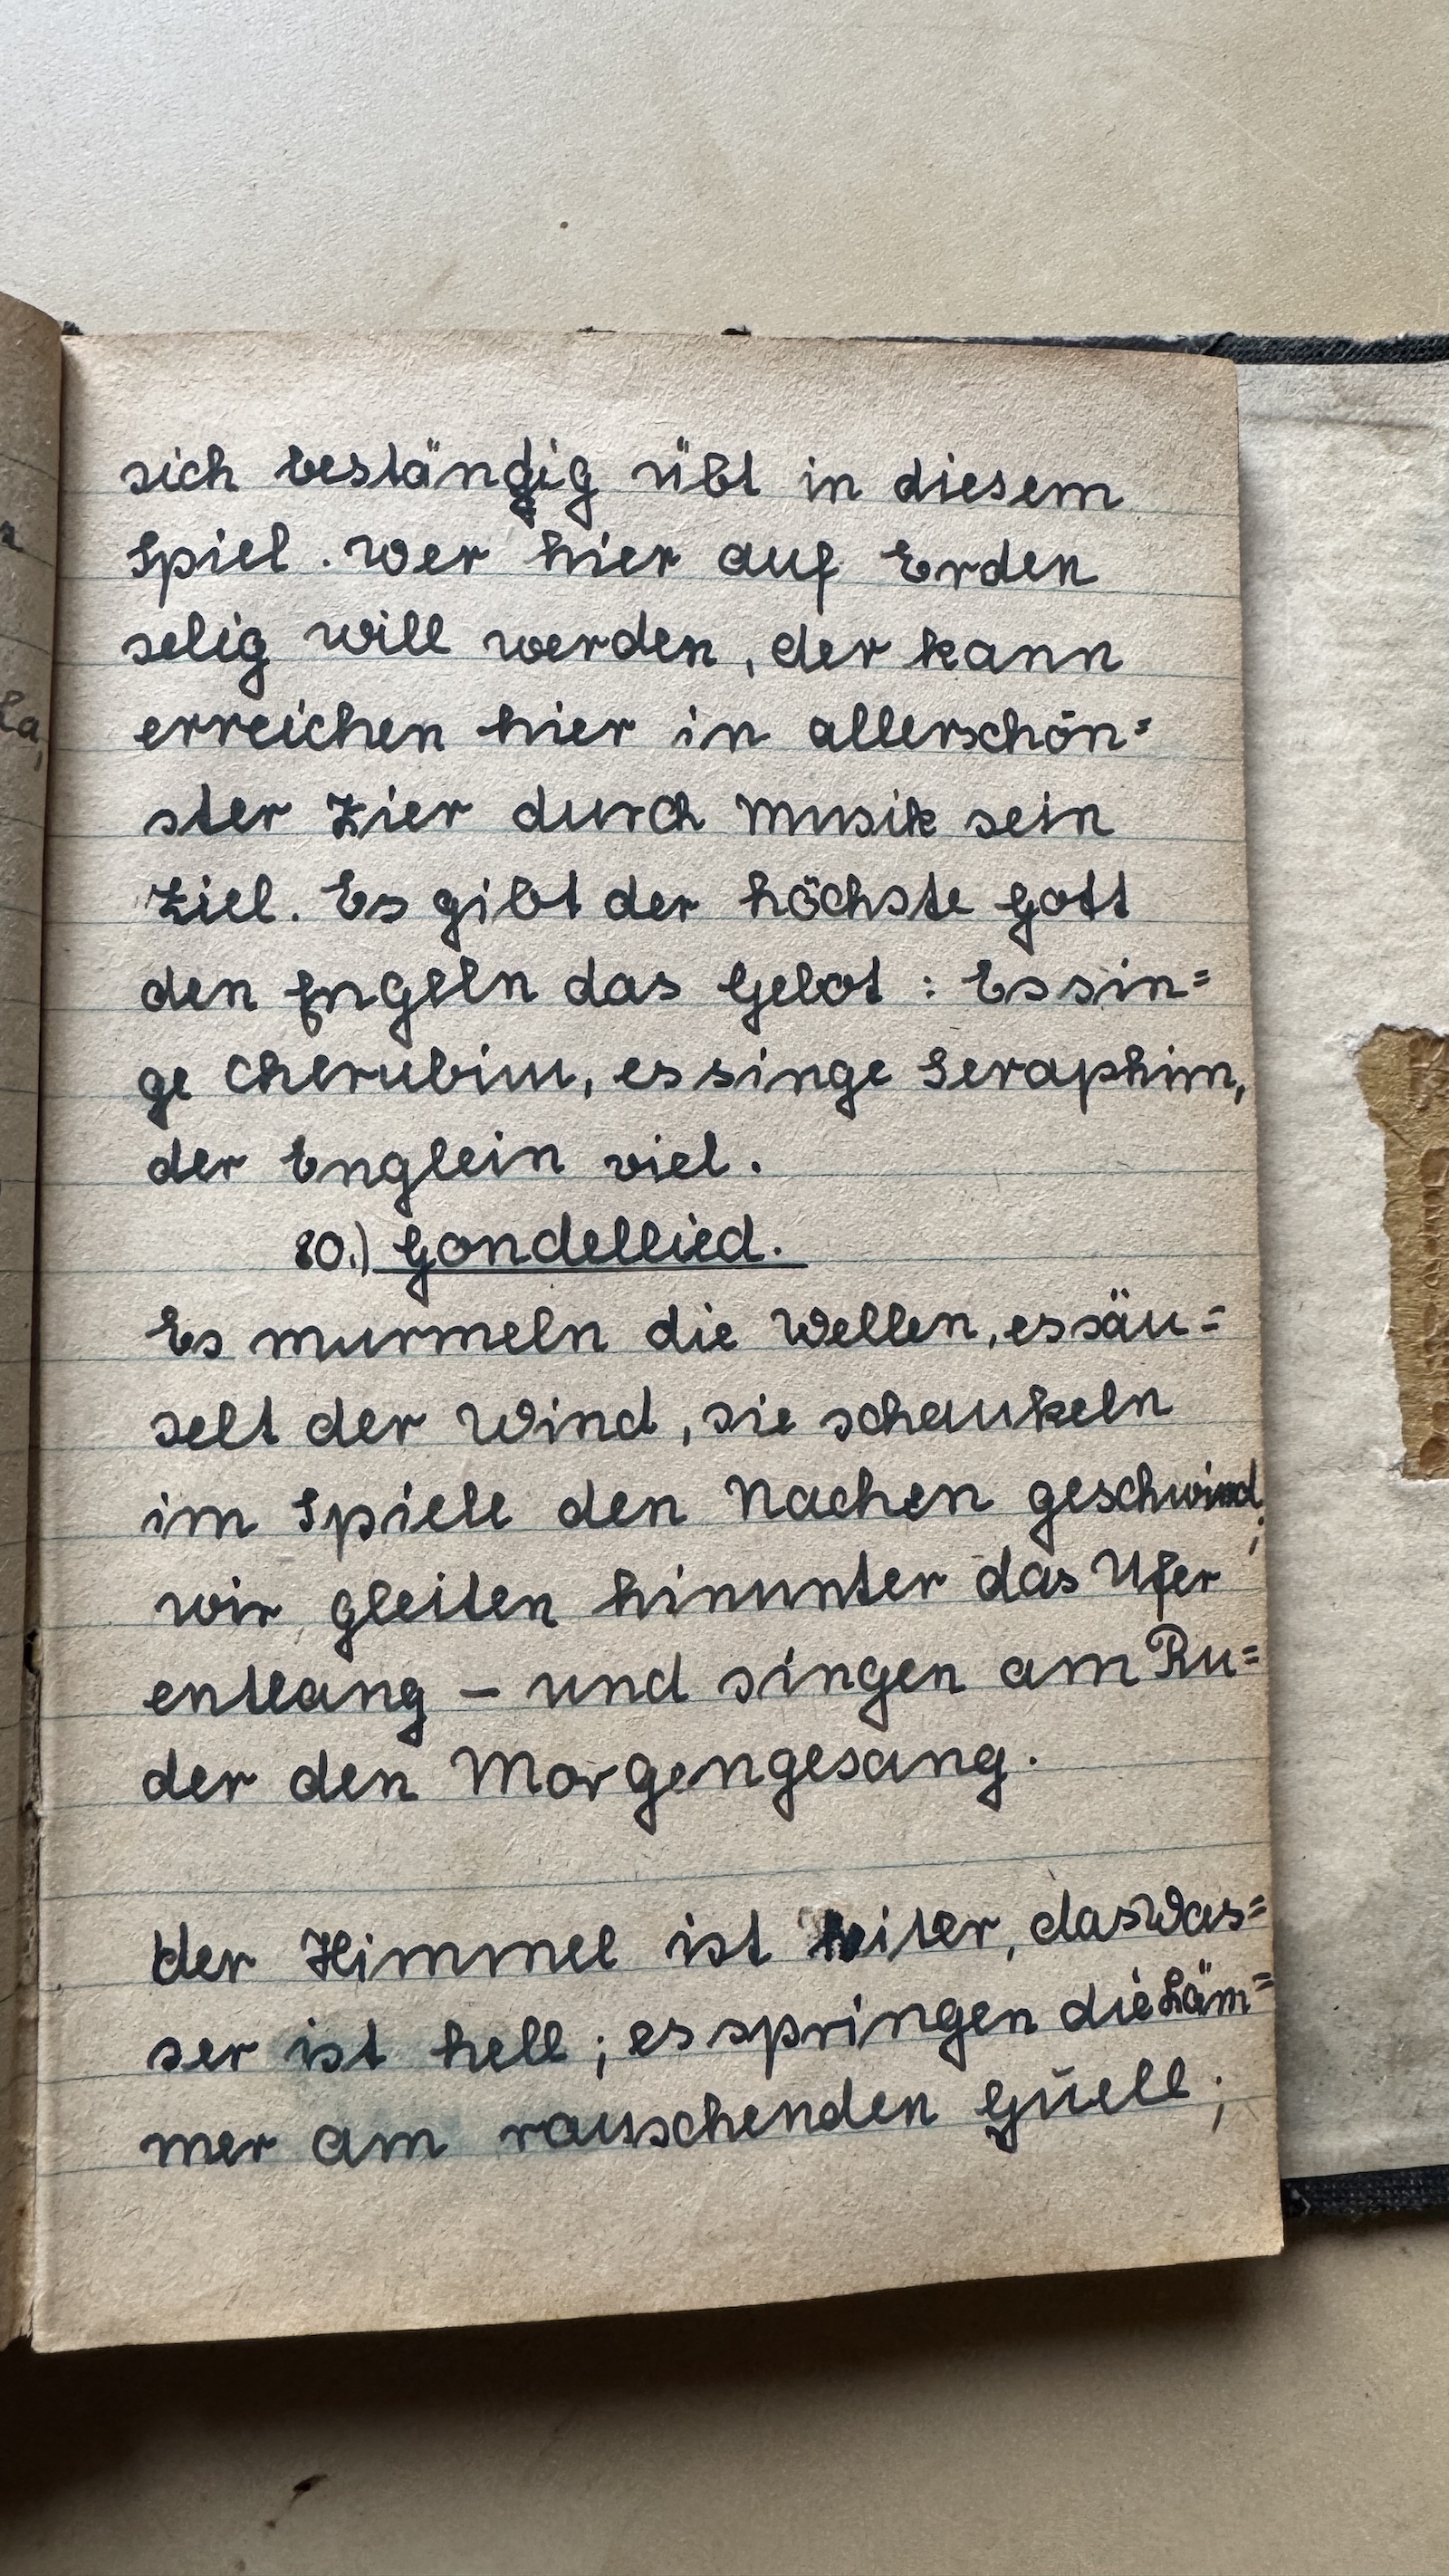 sich beständig übt in diesem
Spiel. Wer hier auf Erden
selig will werden, der kann
erreichen hier in allerschön=
ster Zier durch Musik sein
Ziel. Es gibt der höchste Gott
den Engeln das Gebot: Es sin=
ge Cherubim, es singe Seraphim,
der Englein viel.
80.) Gondellied.
Es murmeln die Wellen, es säu=
selt der Wind, sie schaukeln
im Spiele den Nachen geschwind;
wir gleiten hinunter das Ufer
entlang – und singen am Ru=
der den Morgengesang.
der Himmel ist heiter, das Was=
ser ist hell; es springen die Läm=
mer am rauschenden Quell;
la,